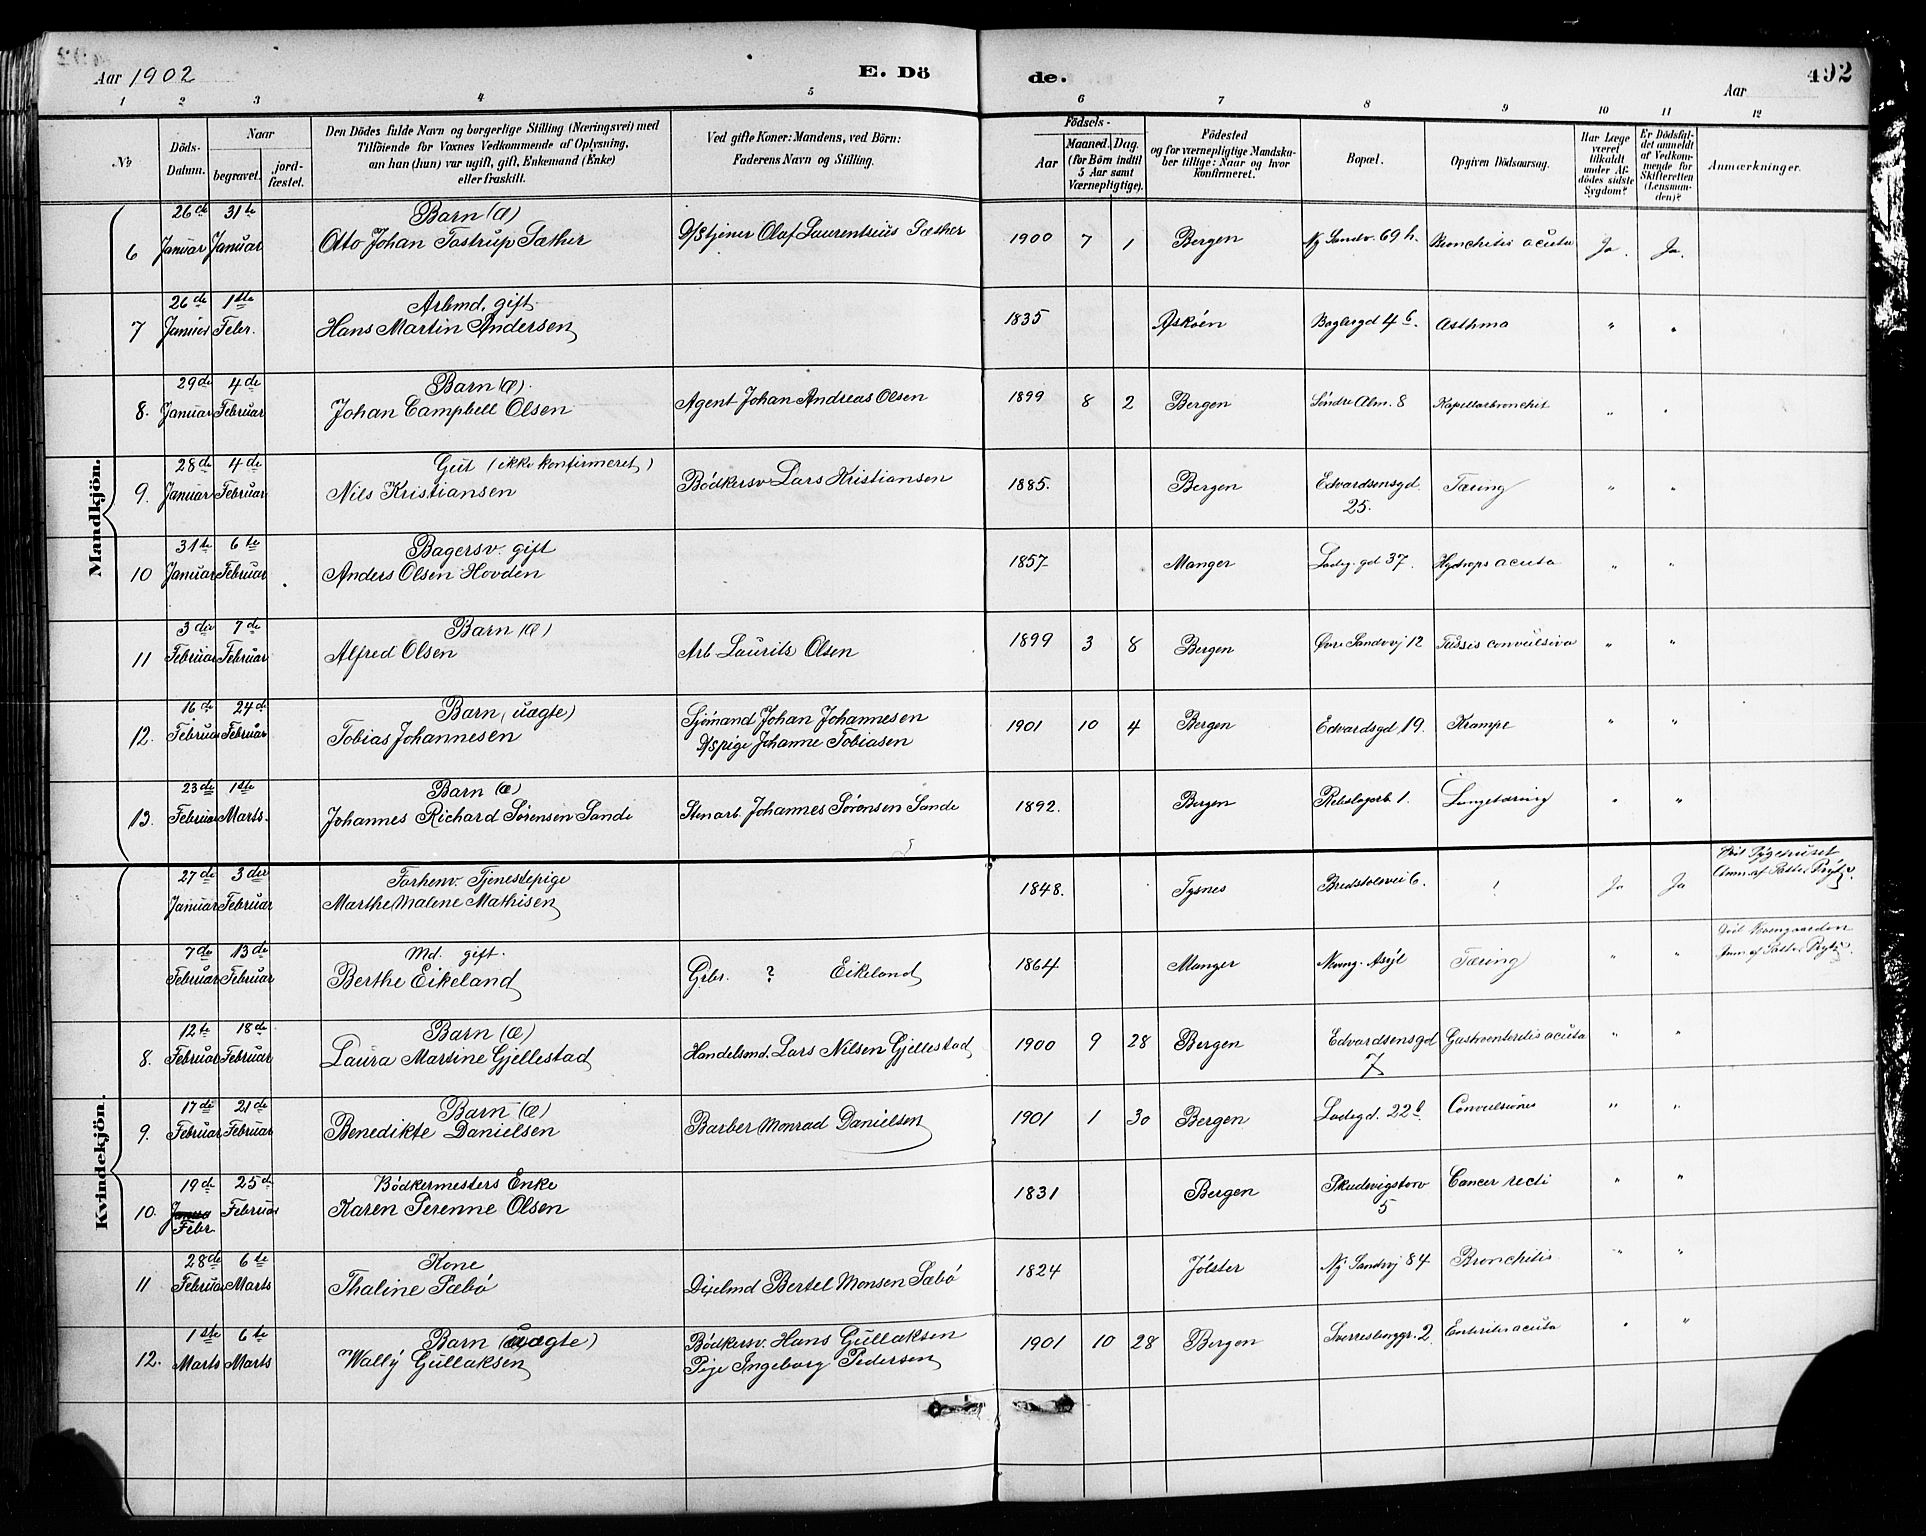 Aar 1902
E. Dö
de.
492
Aar
1 2 3 4 5 6 7 8 9 10 11 12
№
Döds-Datum.
Naar
begravet.
jord-fæstet.
Den Dödes fulde Navn og borgerlige Stilling (Næringsvei) med
Tilföiende for Voxnes Vedkommende af Oplysning,
om han (hun) var ugift, gift, Enkemand (Enke)
eller fraskilt.
Ved gifte Koner: Mandens, ved Börn:
Faderens Navn og Stilling.
Födsels-
Aar
Maaned. Dag.
(for Börn indtil
5 Aar samt
Værnepligtige).
Födested
og for værnepligtige Mandska-
ber tillige: Naar og hvor
konfirmeret.
Bopæl.
Opgiven Dödsaarsag.
Har Læge
været
tilkaldt
under Af-
dödes sidste
Sygdom?
Er Dödsfal-
det anmeldt
af Vedkom-
mende for
Skifteretten
(Lensman-
den)?
Anmærkninger.
Mandkjön.
26de 31te Barn (Æ)
6 Januar Januar Otto Johan Tostrup Sæther D/Stjener Olaf Laurentius Sæther 1900 7 1 Bergen Ny Sandv. 69 h. Bronchitis acuta Ja. Ja.
26de 1ste Arbmd. gift.
7 Januar Febr. Hans Martin Andersen 1835 Askøen Baglergd 4 b. Asthma " "
29de 4de Barn (Æ).
8. Januar Februar Johan Campbell Olsen Agent Johan Andreas Olsen 1899 8 2 Bergen Søndre Alm. 8 Kapillærbronchit " "
28de 4de Gut (ikke konfirmeret)
9. Januar Februar Nils Kristiansen Bødkersv Lars Kristiansen 1885. Bergen Edvardsensgd. Tæring " "
25.
31te 6te Bagersv. gift
10 Januar Februar Anders Olsen Hovden 1857 Manger Ladeg. gd 37. Hydrops acuta " "
3die 7de Barn (Æ)
11 Februar Februar Alfred Olsen Arb Laurits Olsen 1899 3 8 Bergen Øvre Sandvj 12 Tussis convulsiva " "
16de 24de Barn (uægte) Sjømand Johan Johannesen
12. Februar Februar Tobias Johannesen D/Spige Johanne Tobiasen 1901 10 4 Bergen Edvardsgd 19. Krampe " "
23de 1ste Barn (Æ)
13. Februar Marts. Johannes Richard Sørensen Sande Stenarb. Johannes Sørensen Sande 1892. Bergen Rebslagerb 1. Lungetæring " "
Kvindekjön.
27de 3die Forhenv. Tjenestepige
Januar Februar Marthe Malene Mathisen 1848. Tysnes Bredstølsvei 6. ! Ja Ja
Anm. af
7de 13de Md. gift.
Februar Februar Berthe Eikeland Grbr. ? Eikeland 1864 Manger Asyl Tæring " "
Anm. af
12te 18de Barn (Æ)
8. Februar Februar Laura Martine Gjellestad Handelsmd. Lars Nilsen Gjellestad 1900 9 28 Bergen Edvardsensgd Gastroenteritis acuta " "
7
17de 21de Barn (Æ)
9. Februar Februar Benedikte Danielsen Barber Monrad Danielsen 1901 1 30 Bergen Ladegd. 22 b Convulsiones " "
19de 25de Bødkermesters Enke
10. Februar Karen Serenne Olsen 1831 Bergen Skudevigstorv Cancer recti " "
Febr. 5
28de 6te Kone
11 Februar Marts Thaline Sæbø Dixelmd Bertel Monsen Sæbø 1824 Jølster Ny Sandvj 84 Bronchitis " "
1ste 6te Barn (uægte) Bødkersv. Hans Gullaksen
12. Marts Marts Wally Gullaksen Pige Ingeborg Pedersen 1901 10 28 Bergen Sverresborggt. 2 Enteritis acuta " "